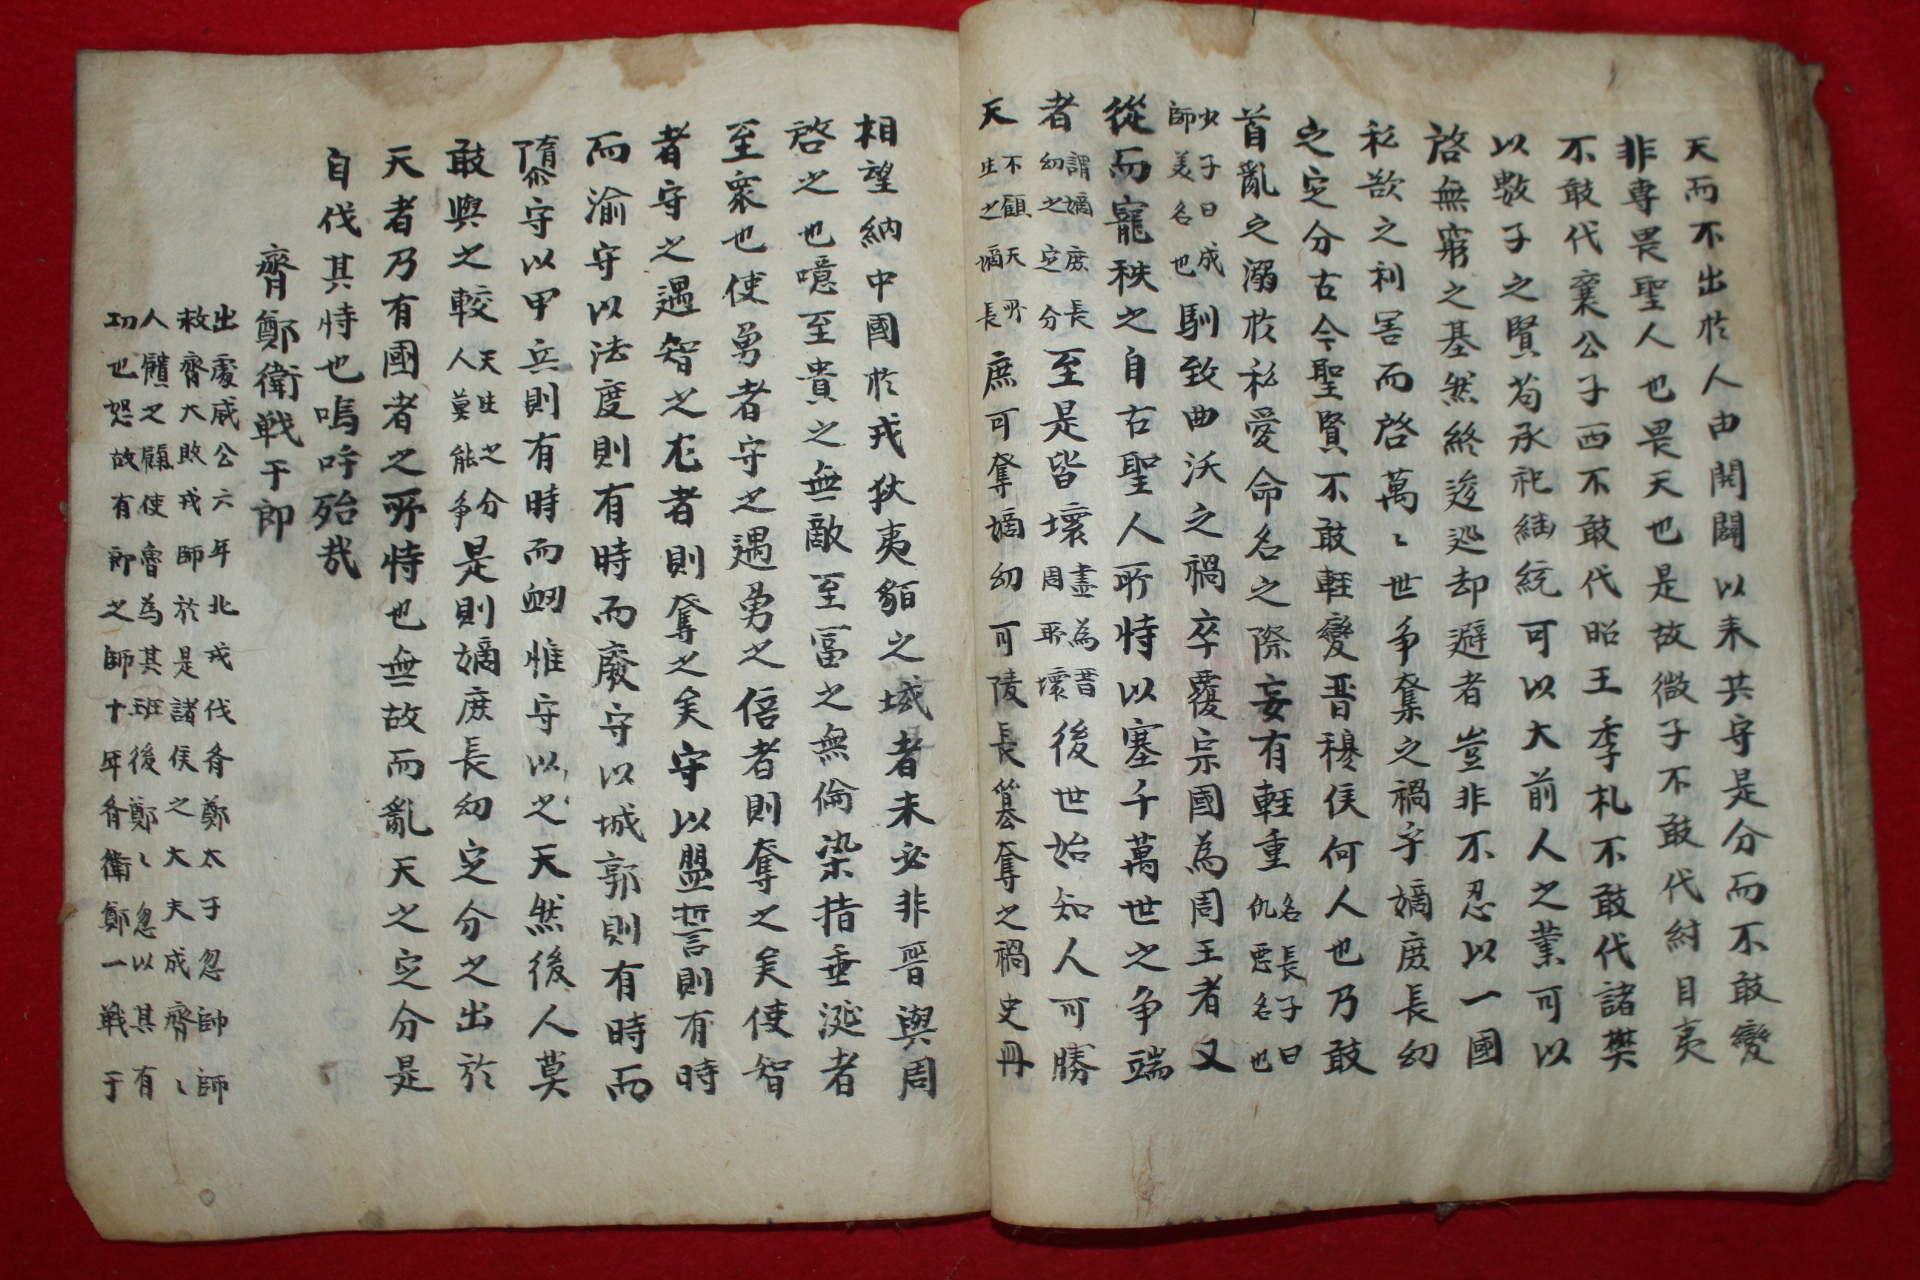 天而不出於人由開闢以来共守是分而不敢變
非専畏聖人也畏天也是故微子不敢代紂目夷
不敢代襄公子西不敢代昭王季札不敢代諸樊
以數子之賢苟承祀緬統可以大前人之業可以
啓無窮之基然終逡廵却避者豈非不忍以一國
私欲之利害而啓萬〻世爭奪之禍乎嫡庶長幼
之定分古今聖賢不敢輕變晋穆侯何人也乃敢
首亂之溺於私愛命名之際妄有輕重名長子曰仇惡名也
少子曰成師美名也馴致曲沃之禍卒覆宗國為周王者又
從而寵秩之自古聖人所恃以塞千萬世之爭端
者謂嫡庶長幼之定分至是皆壞盡為晋周所壞後世始知人可勝
天不顧天所生之嫡長庶可奪嫡幼可陵長簒奪之禍史冊
相望納中國於戎狄夷貊之域者未必非晋與周
啓之也噫至貴之無敵至冨之無倫染指垂涎者
至衆也使勇者守之遇勇之倍者則奪之矣使智
者守之遇智之尤者則奪之矣守以盟誓則有時
而渝守以法度則有時而廢守以城郭則有時而
隳守以甲兵則有時而衂惟守以之天然後人莫
敢與之較天生之分人莫能爭是則嫡庶長幼定分之出於
天者乃有國者之所恃也無故而亂天之定分是
自伐其恃也嗚呼殆㦲
齊鄭衛戦于郎
出處威公六年北戎伐齐鄭太子忽帥師
救齊大敗戎師於是諸侯之大夫成齊〻
人饋之餼使魯為其班後鄭〻忽以其有
功也怒故有郎之師十年齐衛鄭一戦于